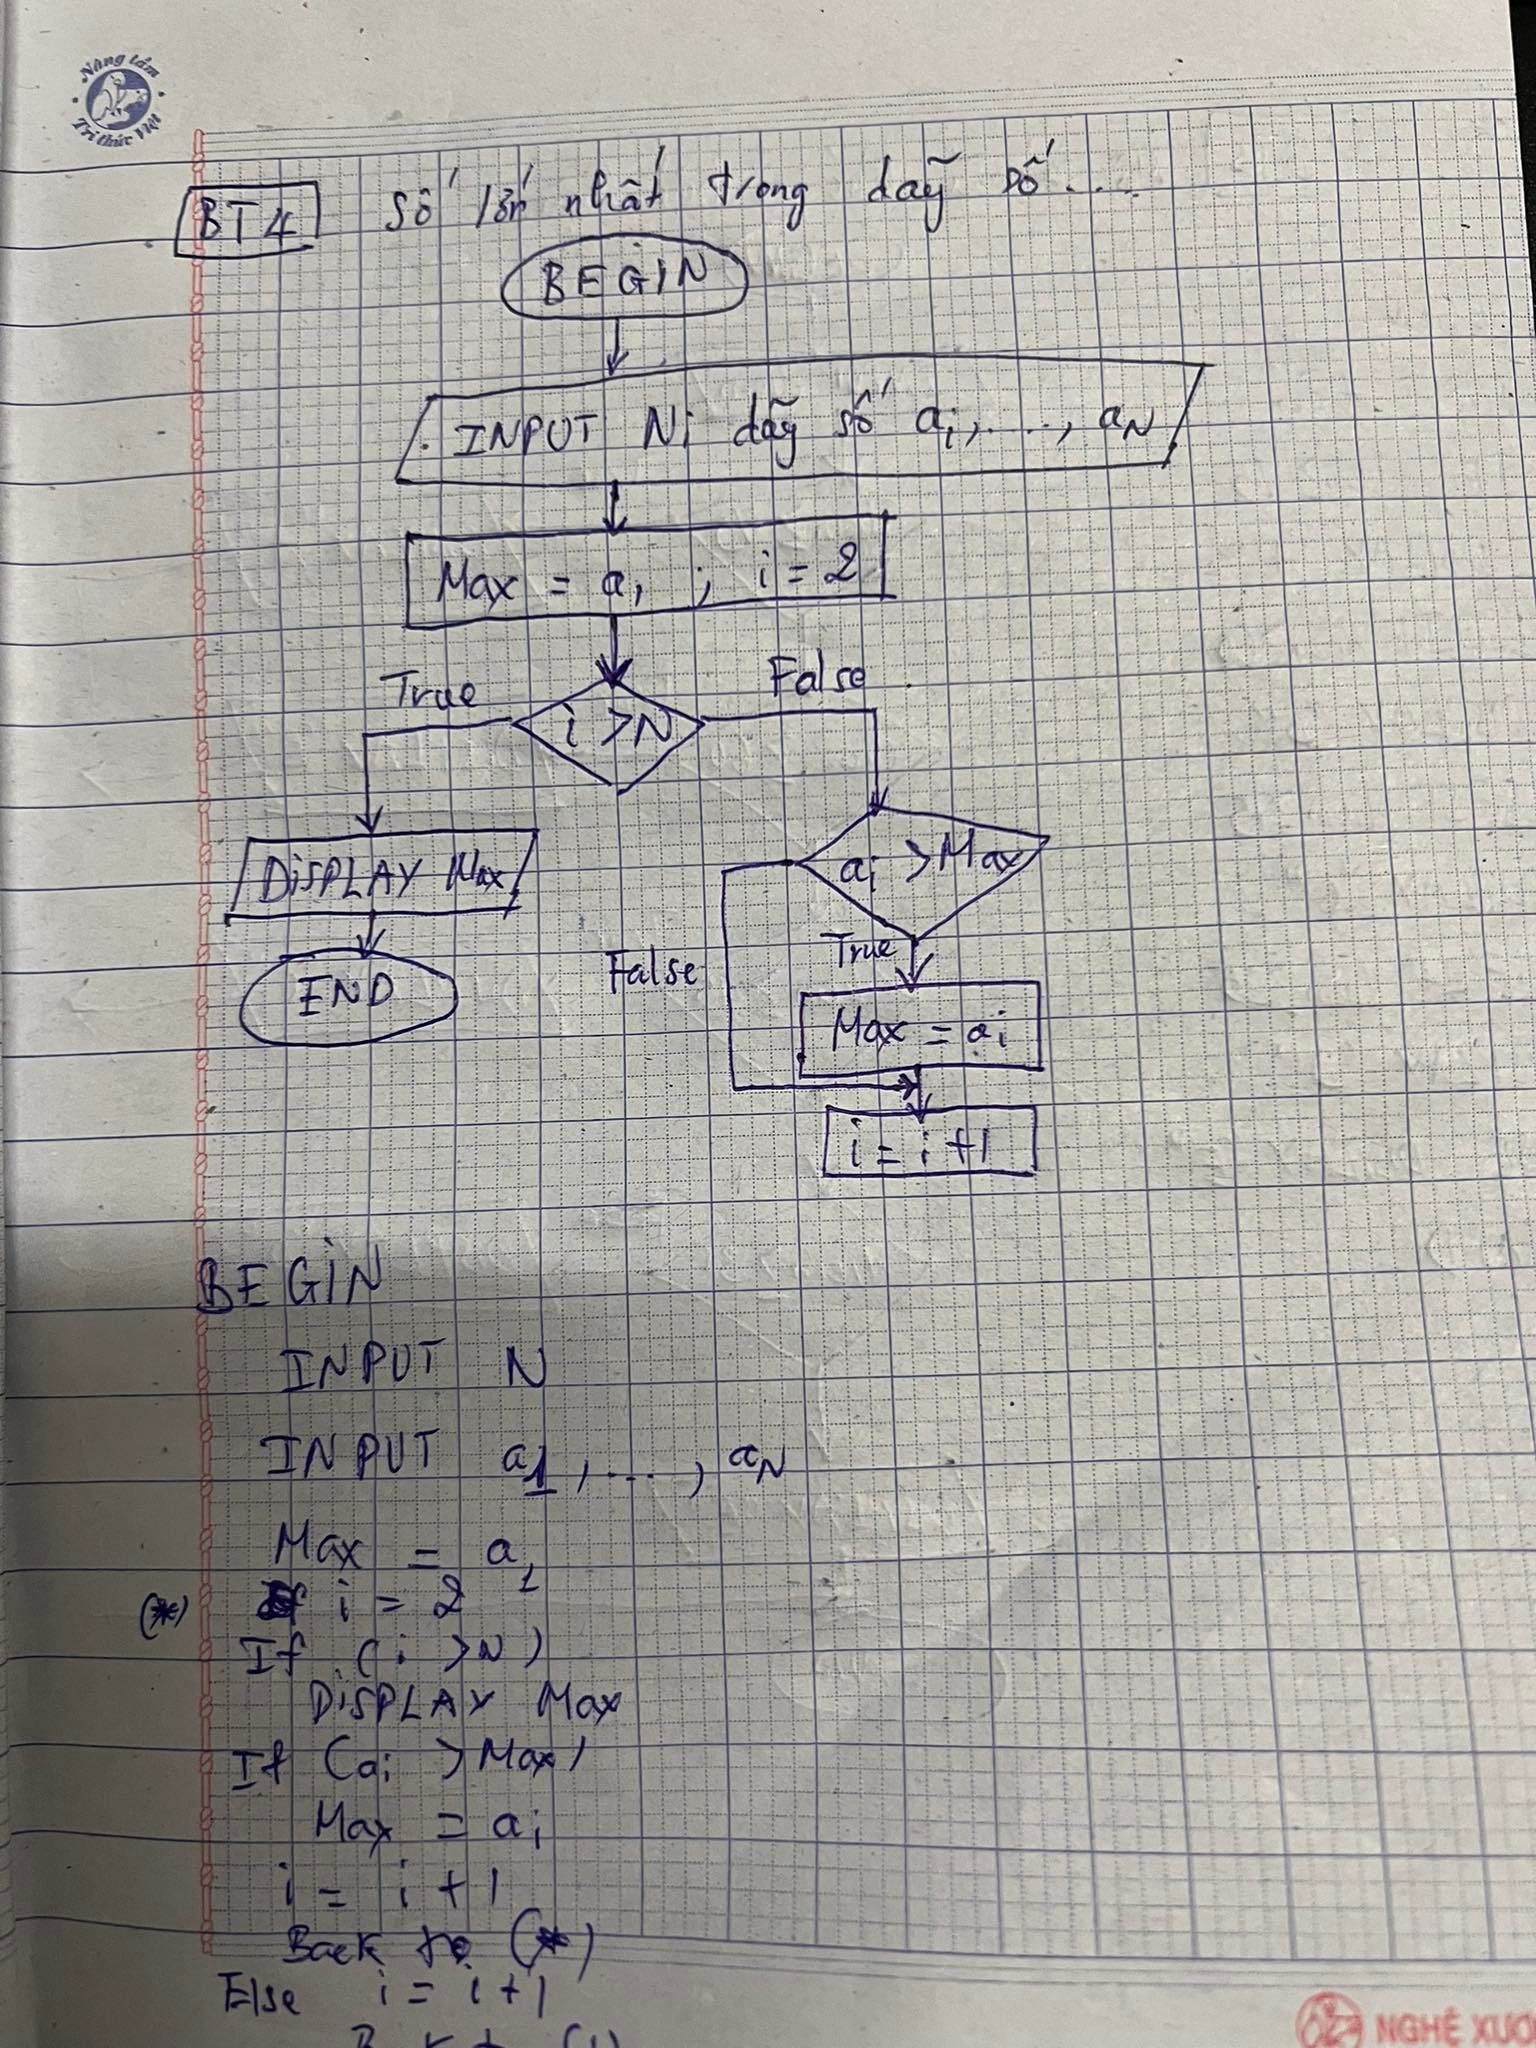 Nâng tầm
Trí thức Việt
BT4 Số lớn nhất trong dãy số....
BEGIN
INPUT N; dãy số ai, ...., aN
Max = a1 ; i = 2
True
False
i > N
DISPLAY Max
ai > Max
END
False
True
Max = ai
i = i + 1
BEGIN
INPUT N
INPUT a1, ...., aN
Max = a1
(*) i = 2
If (i > N)
DISPLAY Max
If (ai > Max)
Max = ai
i = i + 1
Back to (*)
Else i = i + 1
NGHÊ XUO